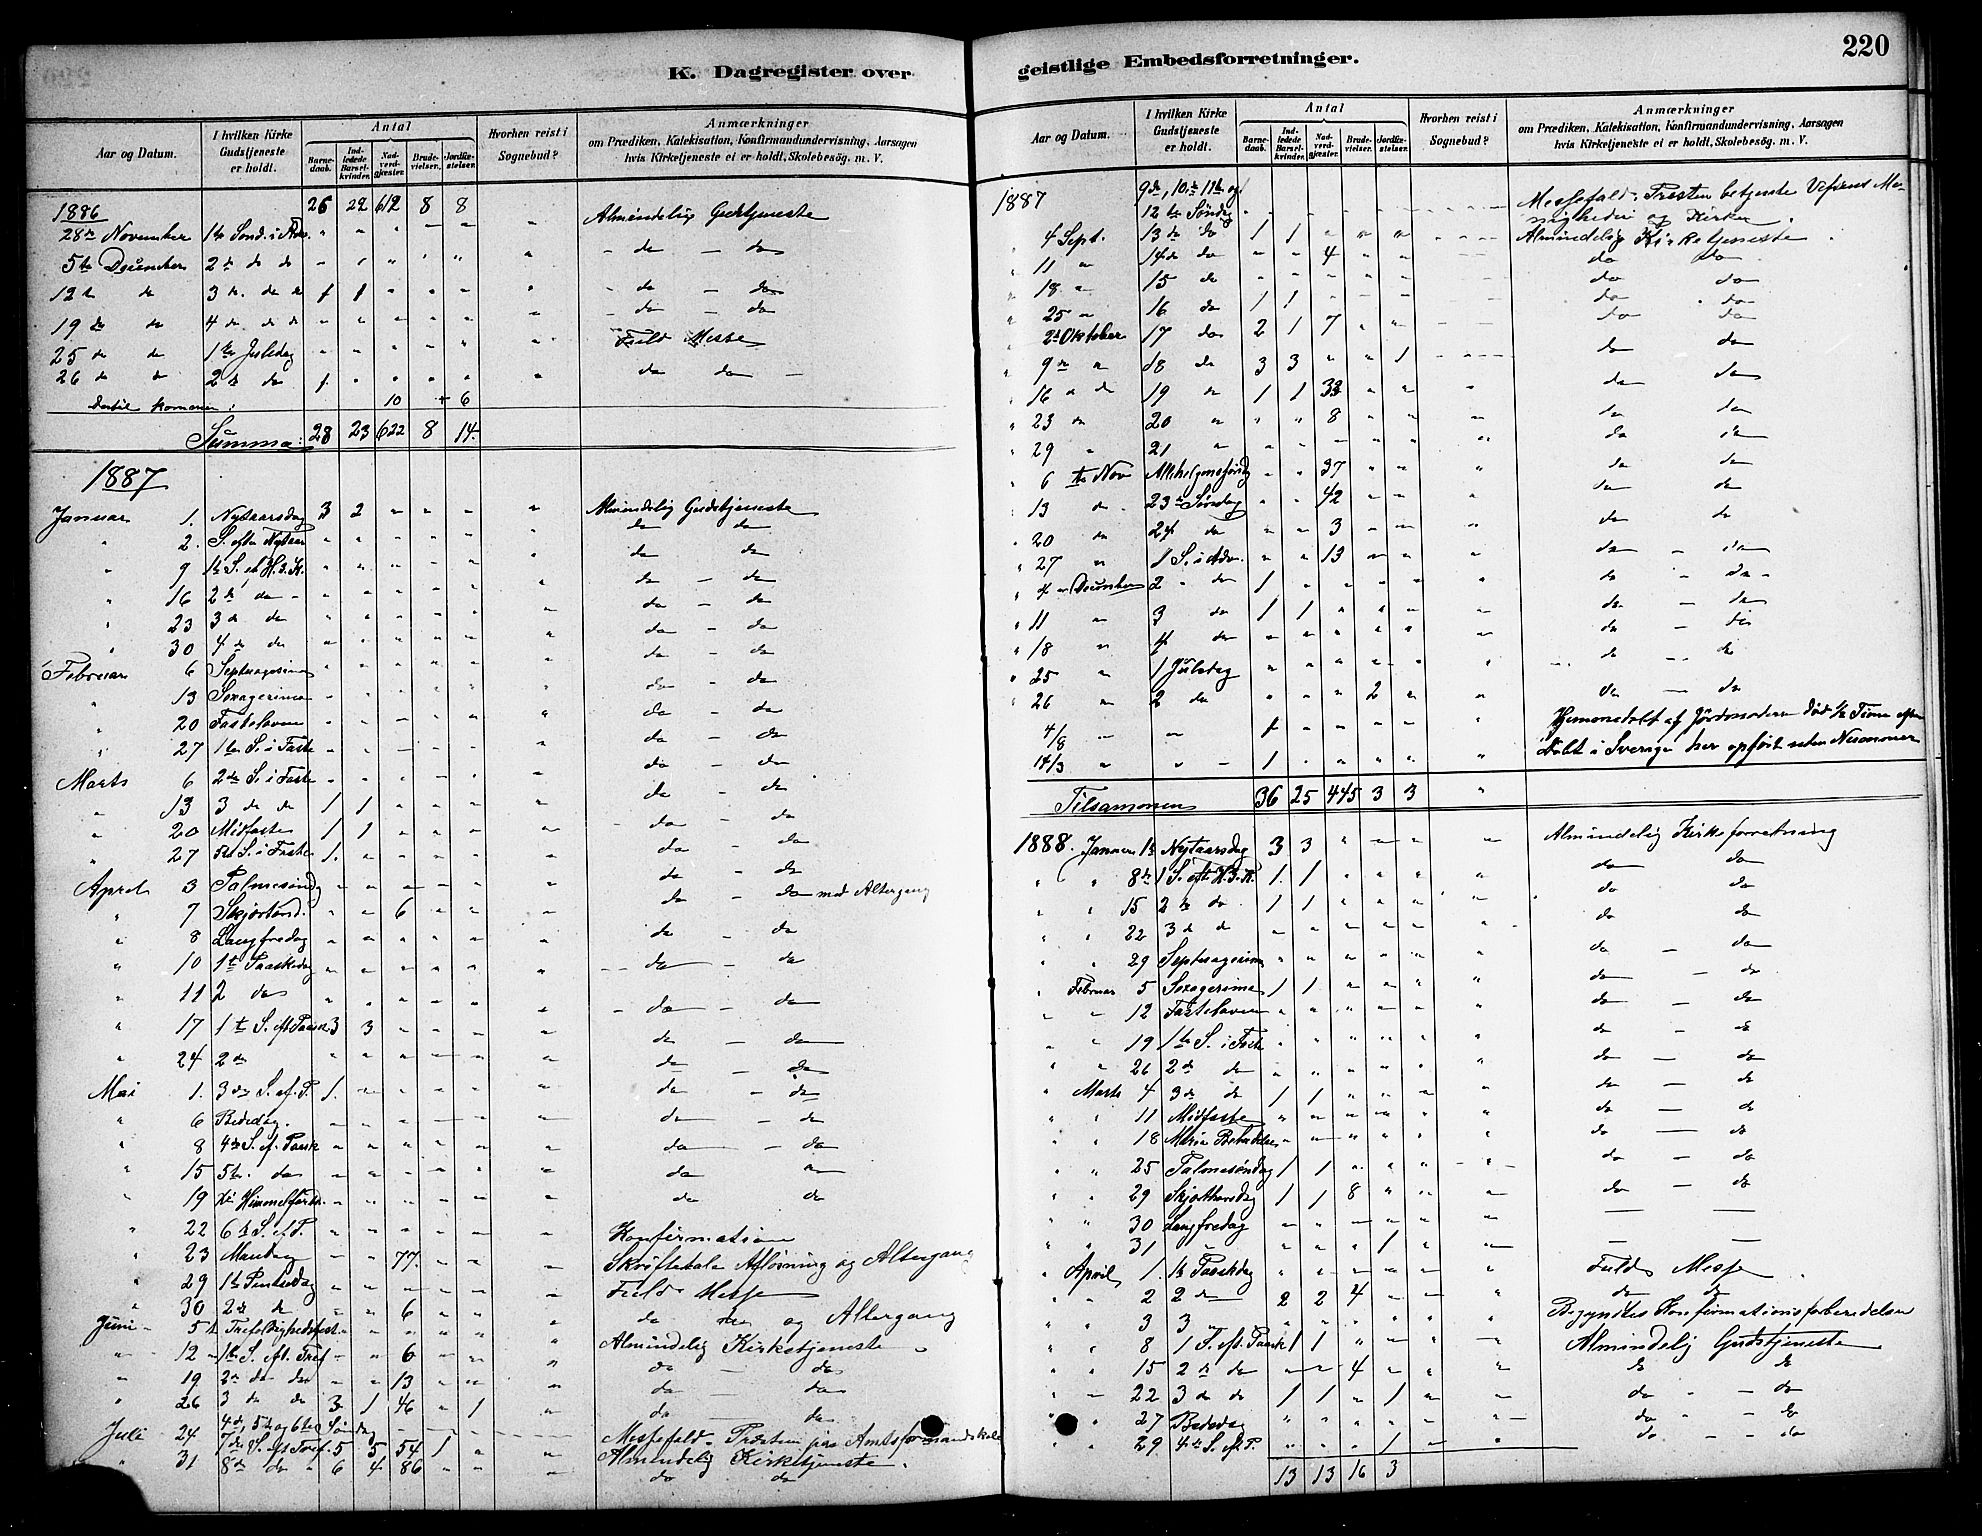 220
K. Dagregister over geistlige Embedsforretninger.
Aar og Datum. | I hvilken Kirke Gudstjeneste er holdt. | Antal | Barnedaab. | Indledede Barselkvinder. | Nadverdgjæster. | Brudevielser. | Jordfæstelser. | Hvorhen reist i Sognebud? | Anmærkninger om Prædiken, Katekisation, Konfirmandundervisning, Aarsagen hvis Kirketjeneste ei er holdt, Skolebesøg. m. V.
1886 26 22 612 8 8
28de November 1ste Sønd. i Adv. " " " " " Almindelig Gudstjeneste
5te December 2de do do " " " " " do - do
12te do 3de do do 1 1 " " " do - do
19de do 4de do do " " " " " do - do
25de do 1ste Juledag " " " " " Fuld Messe
26 do do 2de do 1 " " " " do do
Dertil kommer: 10 + 6
Summa: 28 23 622 8 14.
1887
Januar 1. Nytaarsdag 3 2 " " " Almindelig Gudstjeneste
" 2. S. efter Nytaar " " " " " do do
" 9 1ste S. eft H. 3. K. " " " " " do do
" 16 2de do - " " " " " do - do
" 23 3de do " " " " " do - do
" 30 4de do " " " " " do - do
Februar 6 Septuagesima " " " " " do - do
" 13 Sexagesima " " " " " do - do
" 20 Fastelaven " " " " " do - do
" 27 1ste S. i Faste " " " " " do - do
Marts 6 2de S. i Faste " " " " " do - do
" 13 3de do 1 1 " " " do - do
" 20 Midfaste 1 1 " " " do - do
" 27 5te S. i Faste 1. " " " " do - do
April 3 Palmesøndag " " " " " do - do
" 7 Skjærtorsd. " " 6 " " do - do med Altergang
" 8 Langfredag " " " " " do - do
" 10 1ste Paaskedag " " " " " do - do
" 11 2 do " " " " " do - do
" 17 1ste S. eft Paaske 3 3 " " " do - do
" 24 2de " " " " " do - do
Mai 1. 3de S. ef. P. 1. " " " " do - do
" 6 Bededag. " " " " " do - do
" 8 4de S. ef. Paask " " " " " do - do
" 15 5te do " " " " " do do
" 19 Kri Himmelfartsd. " " " " " do do
" 22 6te S. ef P. " " " " " Konfirmation
" 23 Mandag " " 77. " " Skriftetale Afløsning og Altergang
" 29 1ste Pintsedag " " " " " Fuld Messe
" 30 2de do " " 6 " " do do og Altergang
Juni 5te Trefoldighedsfest " " " " " Almindelig Kirketjeneste
" 12 1ste S. eft. Tref " " 6 " " do - do
" 19 2de do do " " 13 " " do - do
" 26 3 do do 3 1 46 " 1 do - do
4de, 5te og 6te Søndag Messefald. Præsten paa Amtsformandskabet
Juli 24 7de S. eft Tref. 5 5 54 1 " Almindelig Kirketjeneste
" 31 8de do " 6 4 86 " " do do
Aar og Datum. | I hvilken Kirke Gudstjeneste er holdt. | Antal | Barnedaab. | Indledede Barselkvinder. | Nadverdgjæster. | Brudevielser. | Jordfæstelser. | Hvorhen reist i Sognebud? | Anmærkninger om Prædiken, Katekisation, Konfirmandundervisning, Aarsagen hvis Kirketjeneste ei er holdt, Skolebesøg. m. V.
1887 9de, 10de 11te og 12te Søndag " " " " " Messefald. Præsten betjente Vefsens Menigheder og Kirker.
" 4 Sept. 13de do 1 1 " " " Almindelig Kirketjeneste
" 11 " 14de do " " 4 " " do do
" 18 " 15 do " " " " " do do
" 25 " 16 do 1 1 " " " do do
" 2de Oktober 17 do 2 1 7 " " do do
" 9de " 18 do 3 3 " " 1 do do
" 16 " do 19 do 1 1 33 " " do do
" 23 do 20 " " " 8 " " do do
" 29 " 21 " " " " " " do do
" 6te Nov Allehelgenssøndag " " 37 " " do do
" 13 do 23de Søndag " " 42 " " do do
" 20 do 24 do " " 3 " " do do
" 27 " 1 S. i Adv. " " 13 " " do - do
" 4 " December 2 " do 1 " " " " do - do
" 11 " 3 do 1 1 " " " do - do
" 18 " 4 do " " " " " do - do
" 25 " 1 Juledag " " " " " do - do
" 26 " 2 do " " " 2 " do - do
4/8 " " 1 " " " " Hjemmedøbt af Jordmoderen død 1/2 Time efter
14/3 " " 1 " " " " Døbt i Sverige her opført uden Nummer
Tilsammen 36 25 445 3 3
1888. Januar 1ste Nytaarsdag 3 3 " " " Almindelig Kirkeforretning
" " 8de 1 S. eft H. 3. K. 1. 1 " " " do do
" " 15 2de do 1 1 " " " do do
" " 22 3de do " " " " " do do
" " 29 Septuagesima " " " " " do - do
" Februar 5 Sexagesima 1 1 " " " do - do
" " 12 Fastelaven " " " " " do - do
" " 19 1ste S. i Faste " " " " " do - do
" " 26 2de do " " " " " do - do
" Marts 4 3de do 1 1 " " " do - do
" " 11 Midfaste " " " " " do - do
" " 18 Maria Bebudelse " " " " " do - do
" " 25 Palmesøndag 1 1 " " " do - do
" " 29 Skjærthorsdag 1 1 8 " " do - do
" " 30 Langfredag " " " " " — —
" " 31 " " " " " 1 — —
" April 1. 1ste Paaskdag " " " " " Fulde Messe
" " 2 2 do 2 2 4 " " do do
" " 3 3 " " " " " " Begyndtes Konfirmationsforberedelsen
" " 8 1 S. eft. Paaske 1 1 " " " Almindelig Gudstjeneste
" " 15 2de do " " 4 " " do do
" " 22 3 do do 1 1 " 1 do - do
" " 27 Bededag " " " " " do - do
" " 29 4de S. eft. P. " " " 1 do - do
13 13 16 3